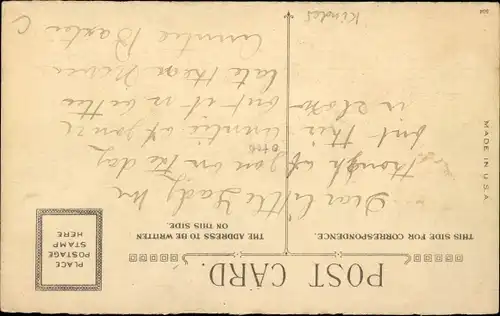 POST CARD.
THIS SIDE FOR CORRESPONDENCE.
THE ADDRESS TO BE WRITTEN
ON THIS SIDE.
PLACE
POSTAGE
STAMP
HERE
MADE IN U.S.A.
Dear little Lady
thought of you on the day
but this auntie of yours
is slow but it is better
late than never
Auntie Baxter
Kinder